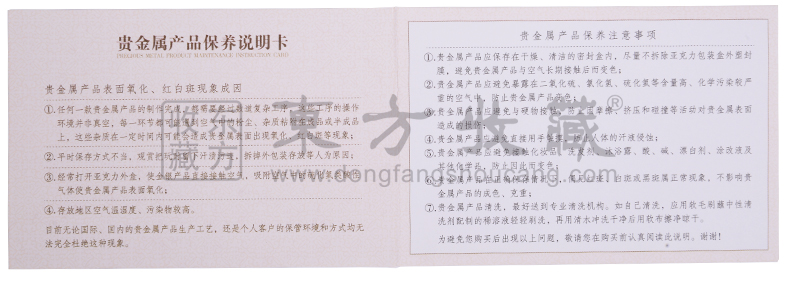 贵金属产品保养说明卡
PRECIOUS METAL PRODUCT MAINTENANCE INSTRUCTION CARD
贵金属产品表面氧化、红白斑现象成因
①.任何一款贵金属产品的制作完成
环境并非真空,每一环节都
上,这些杂质在一定时间内可能会造成贵金属表面出现氧化、红白斑等现象;
②.平时保存方式不当,观赏把玩时
拆掉外包装存放等人为原因;
③.经常打开亚克力外盒,使金银产品直接接触空气,
气体使贵金属产品表面氧化;
④.存放地区空气温湿度、污染物较高。
目前无论国际、国内的贵金属产品生产工艺,还是个人客户的保管环境和方式均无
法完全杜绝这种现象。
贵金属产品保养注意事项
①.贵金属产品应保存在干燥、清洁的密封盒内,尽量不拆除亚克力包装盒外塑封
膜,避免贵金属产品与空气长期接触后而变色;
②.贵金属产品应避免暴露在二氧化硫、氯化氢、硫化氢等含量高、化学污染较严
重的空气中,防止贵金属产品变色;
③.贵金属产品应避免与硬物接触,
挤压和碰撞等活动对贵金属表面
造成的损伤;
④.贵金属产品应避免直接用手触摸,
体的汗液侵蚀;
⑤.贵金属产品应避免接触化妆品、洗发水、沐浴露、酸、碱、漂白剂、涂改液及
其他化学品,防止因此而变色;
⑥.贵金属产品在正确保存情况下,偶见红斑、白斑或黑斑属正常现象,不影响贵
金属产品的成色、克重;
⑦.贵金属产品清洗,最好送到专业清洗机构。如自己清洗,应用软毛刷蘸中性清
洗剂配制的稀溶液轻轻刷洗,再用清水冲洗干净后用软布擦净晾干。
为避免您购买后出现以上问题,敬请您在购买前认真阅读此说明。谢谢!
東方收藏®
www.dongfangshoucang.com